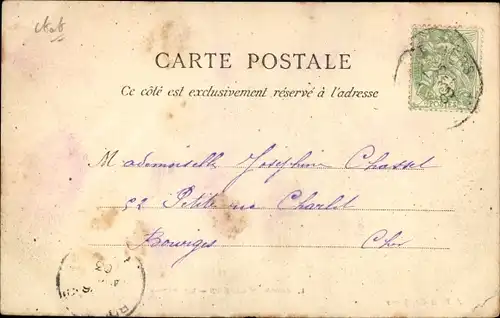 CARTE POSTALE
Ce côté est exclusivement réservé à l'adresse
Mademoiselle Joséphine Chassel
52 Petite rue Charlet
Bourges Cher